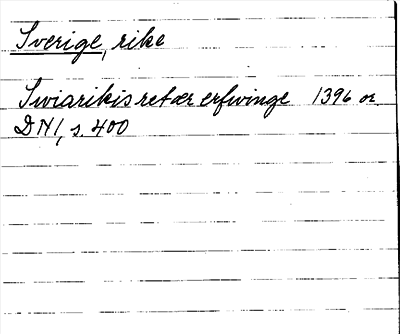 Sverige, rike
Swiarikis retær erfwinge 1396 or
DN 1, s. 400